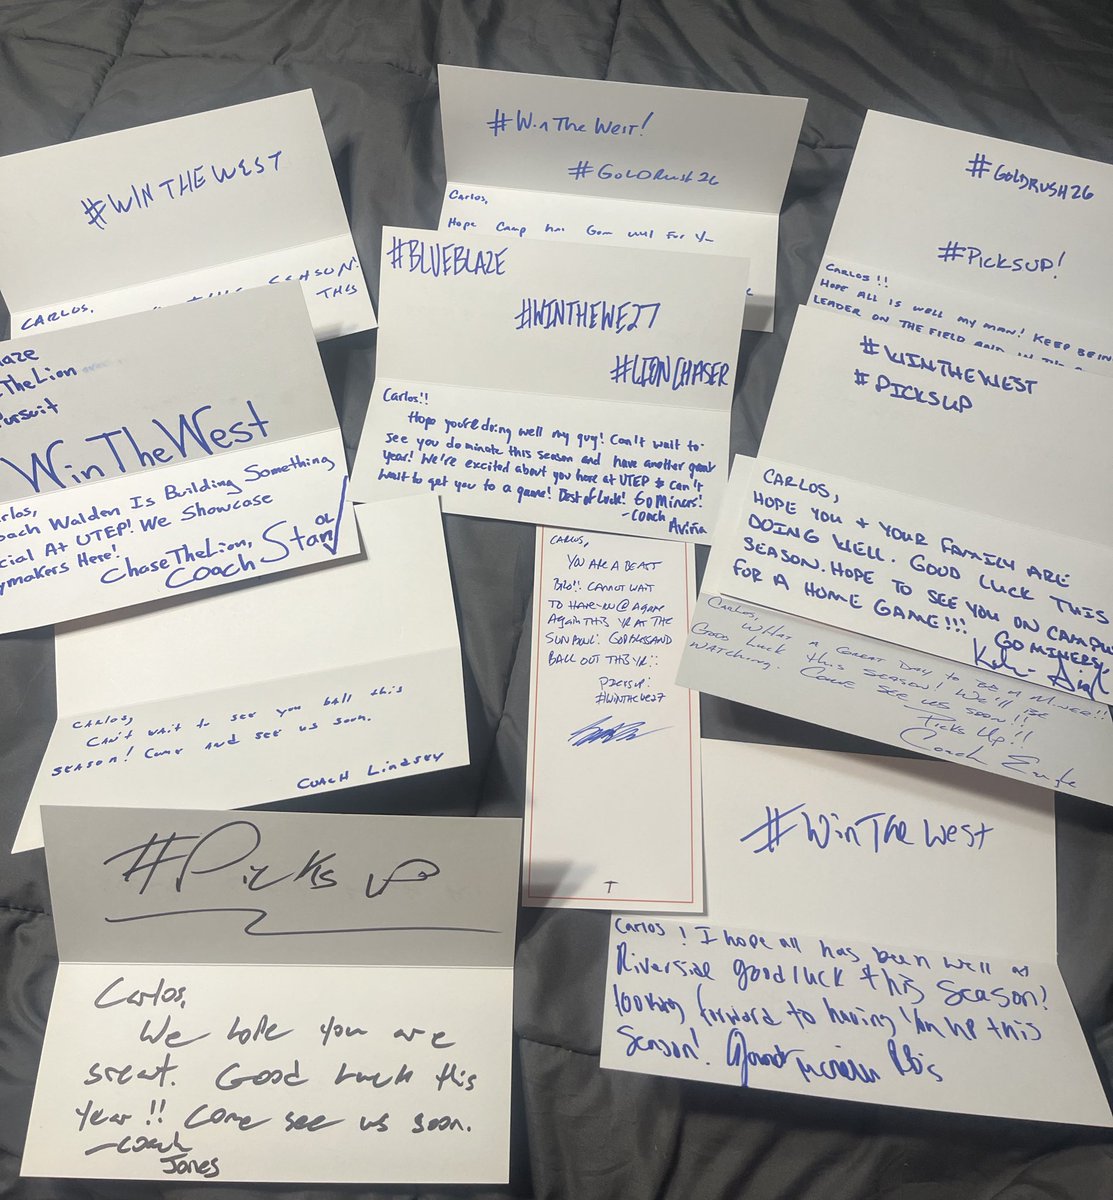 #WIN THE WEST
CARLOS,
SEASON!
THIS
#WinTheWest!
#GOLDRush26
Carlos,
Hope Camp has Gone well For
#GOLDRUSH26
#PICKSUP!
CARLOS!!
HOPE ALL IS WELL MY MAN! KEEP BEING
LEADER ON THE FIELD
TheLion
Pursuit
WinTheWest
Coach Walden Is Building Something
At UTEP! We Showcase
Here!
ChaseTheLion,
Coach Stan
#BLUEBLAZE
#WINTHEWE27
#LIONCHASER
Carlos!!
Hope you're doing well my guy! Can't wait to
see you dominate this season and have another great
year! We're excited about you here at UTEP & can't
wait to get you to a game! Best of luck! Go Miners!
-Coach
Aviña
#WINTHEWEST
#PICKSUP
CARLOS,
HOPE YOU + YOUR FAMILY ARE
DOING WELL. GOOD LUCK THIS
SEASON. HOPE TO SEE YOU ON CAMPUS
FOR A HOME GAME!!!
GO MINERS,
CARLOS,
YOU ARE A BEAST
BRO!! CANNOT WAIT
TO HAVE YOU @ A GAME
AGAIN THIS YR AT THE
SUN BOWL! GOD BLESS AND
BALL OUT THIS YR!!
PICKSUP!
#WINTHEWE27
Carlos,
What a great day to be a Miner!!
Good luck this season! We'll be
watching.
Come see us soon!!
Picks Up!!
Coach
Carlos,
Can't wait to see you ball this
season! Come and see us soon.
COACH Lindsey
#Picks UP
Carlos,
We hope you are
great. Good Luck this
Year!! Come see us soon.
-Coach
Jones
#WinThe West
Carlos! I hope all has been well at
Riverside good luck this season!
looking forward to having you up this
Season!